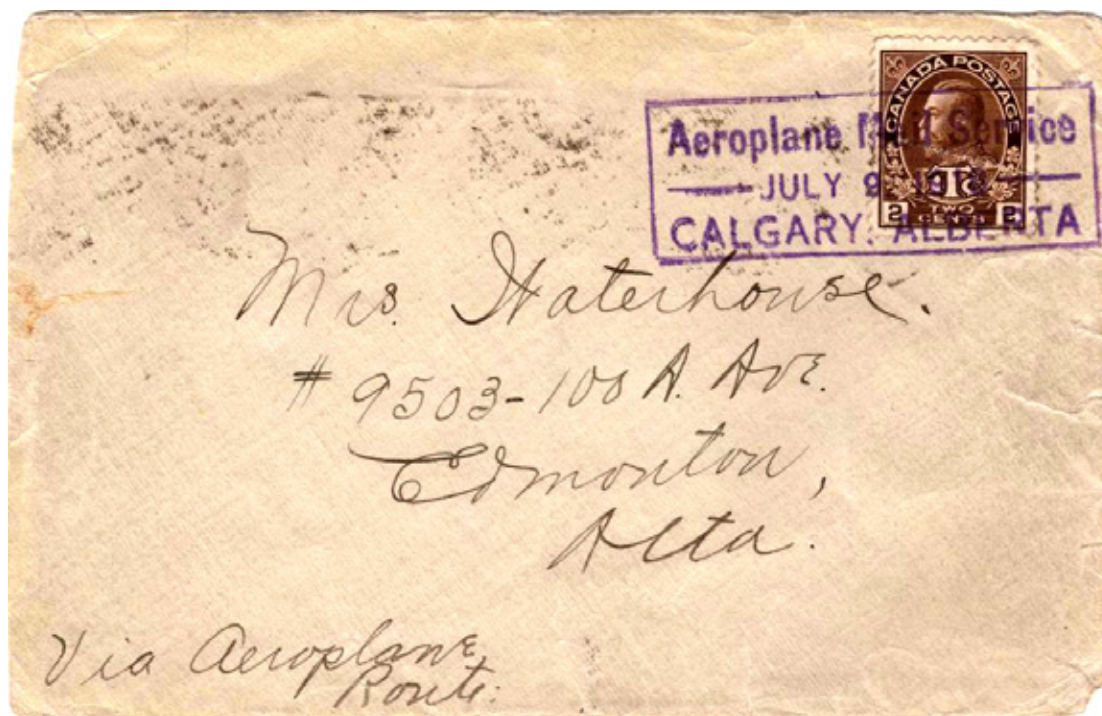 CANADA POSTAGE
1T¢
TWO CENTS
2 2
Aeroplane Mail Service
JULY 9, 1918
CALGARY, ALBERTA
Mrs. Waterhouse.
# 9503-100 A. Ave.
Edmonton,
Alta.
Via Aeroplane
Route.